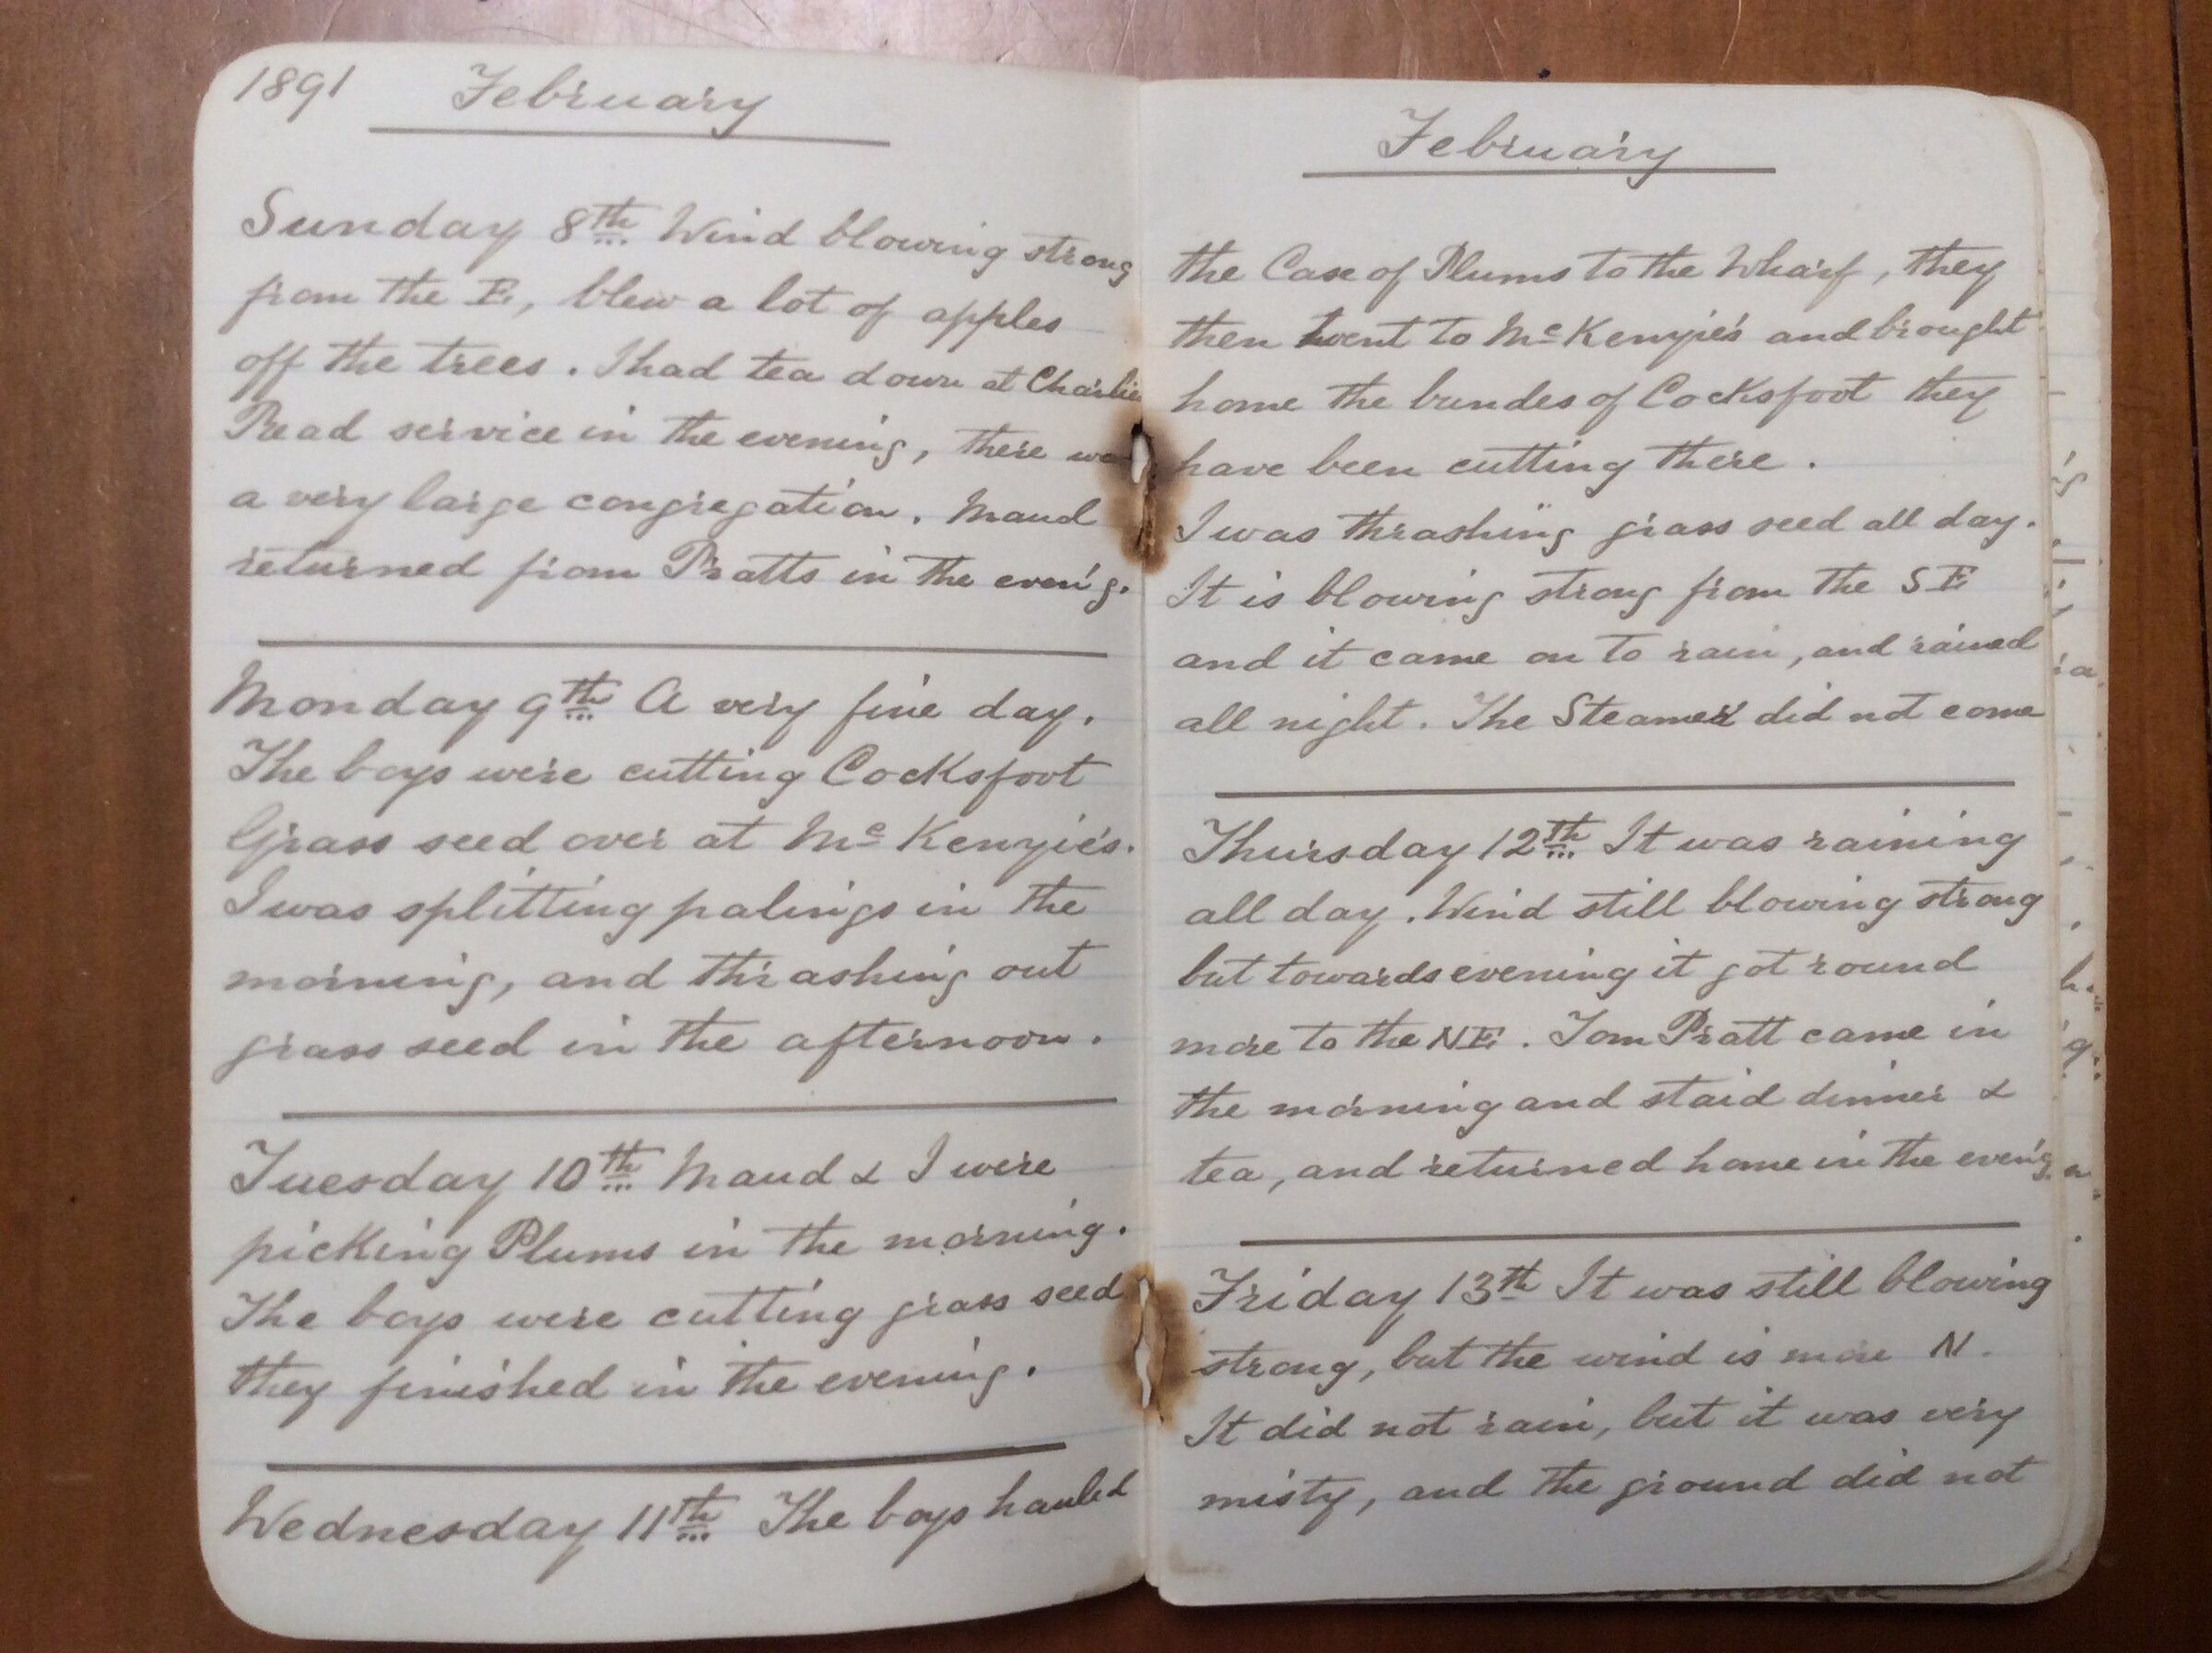 1891 February
Sunday 8th Wind blowing strong
from the E, blew a lot of apples
off the trees. I had tea down at Charlie
Read service in the evening, there wa
a very large congregation. Maud
returned from Pratts in the eveng.
Monday 9th A very fine day.
The boys were cutting Cocksfoot
Grass seed over at McKenzie's.
I was splitting palings in the
morning, and thrashing out
grass seed in the afternoon.
Tuesday 10th Maud & I were
picking Plums in the morning.
The boys were cutting grass seed
they finished in the evening.
Wednesday 11th The boys hauled
February
the Case of Plums to the Wharf, they
then went to McKenzie's and brought
home the bundes of Cocksfoot they
have been cutting there.
I was thrashing grass seed all day.
It is blowing strong from the SE
and it came on to rain, and rained
all night. The Steamer did not come
Thursday 12th It was raining
all day. Wind still blowing strong
but towards evening it got round
more to the NE. Tom Pratt came in
the morning and staid dinner &
tea, and returned home in the eveng.
Friday 13th It was still blowing
strong, but the wind is more N.
It did not rain, but it was very
misty, and the ground did not